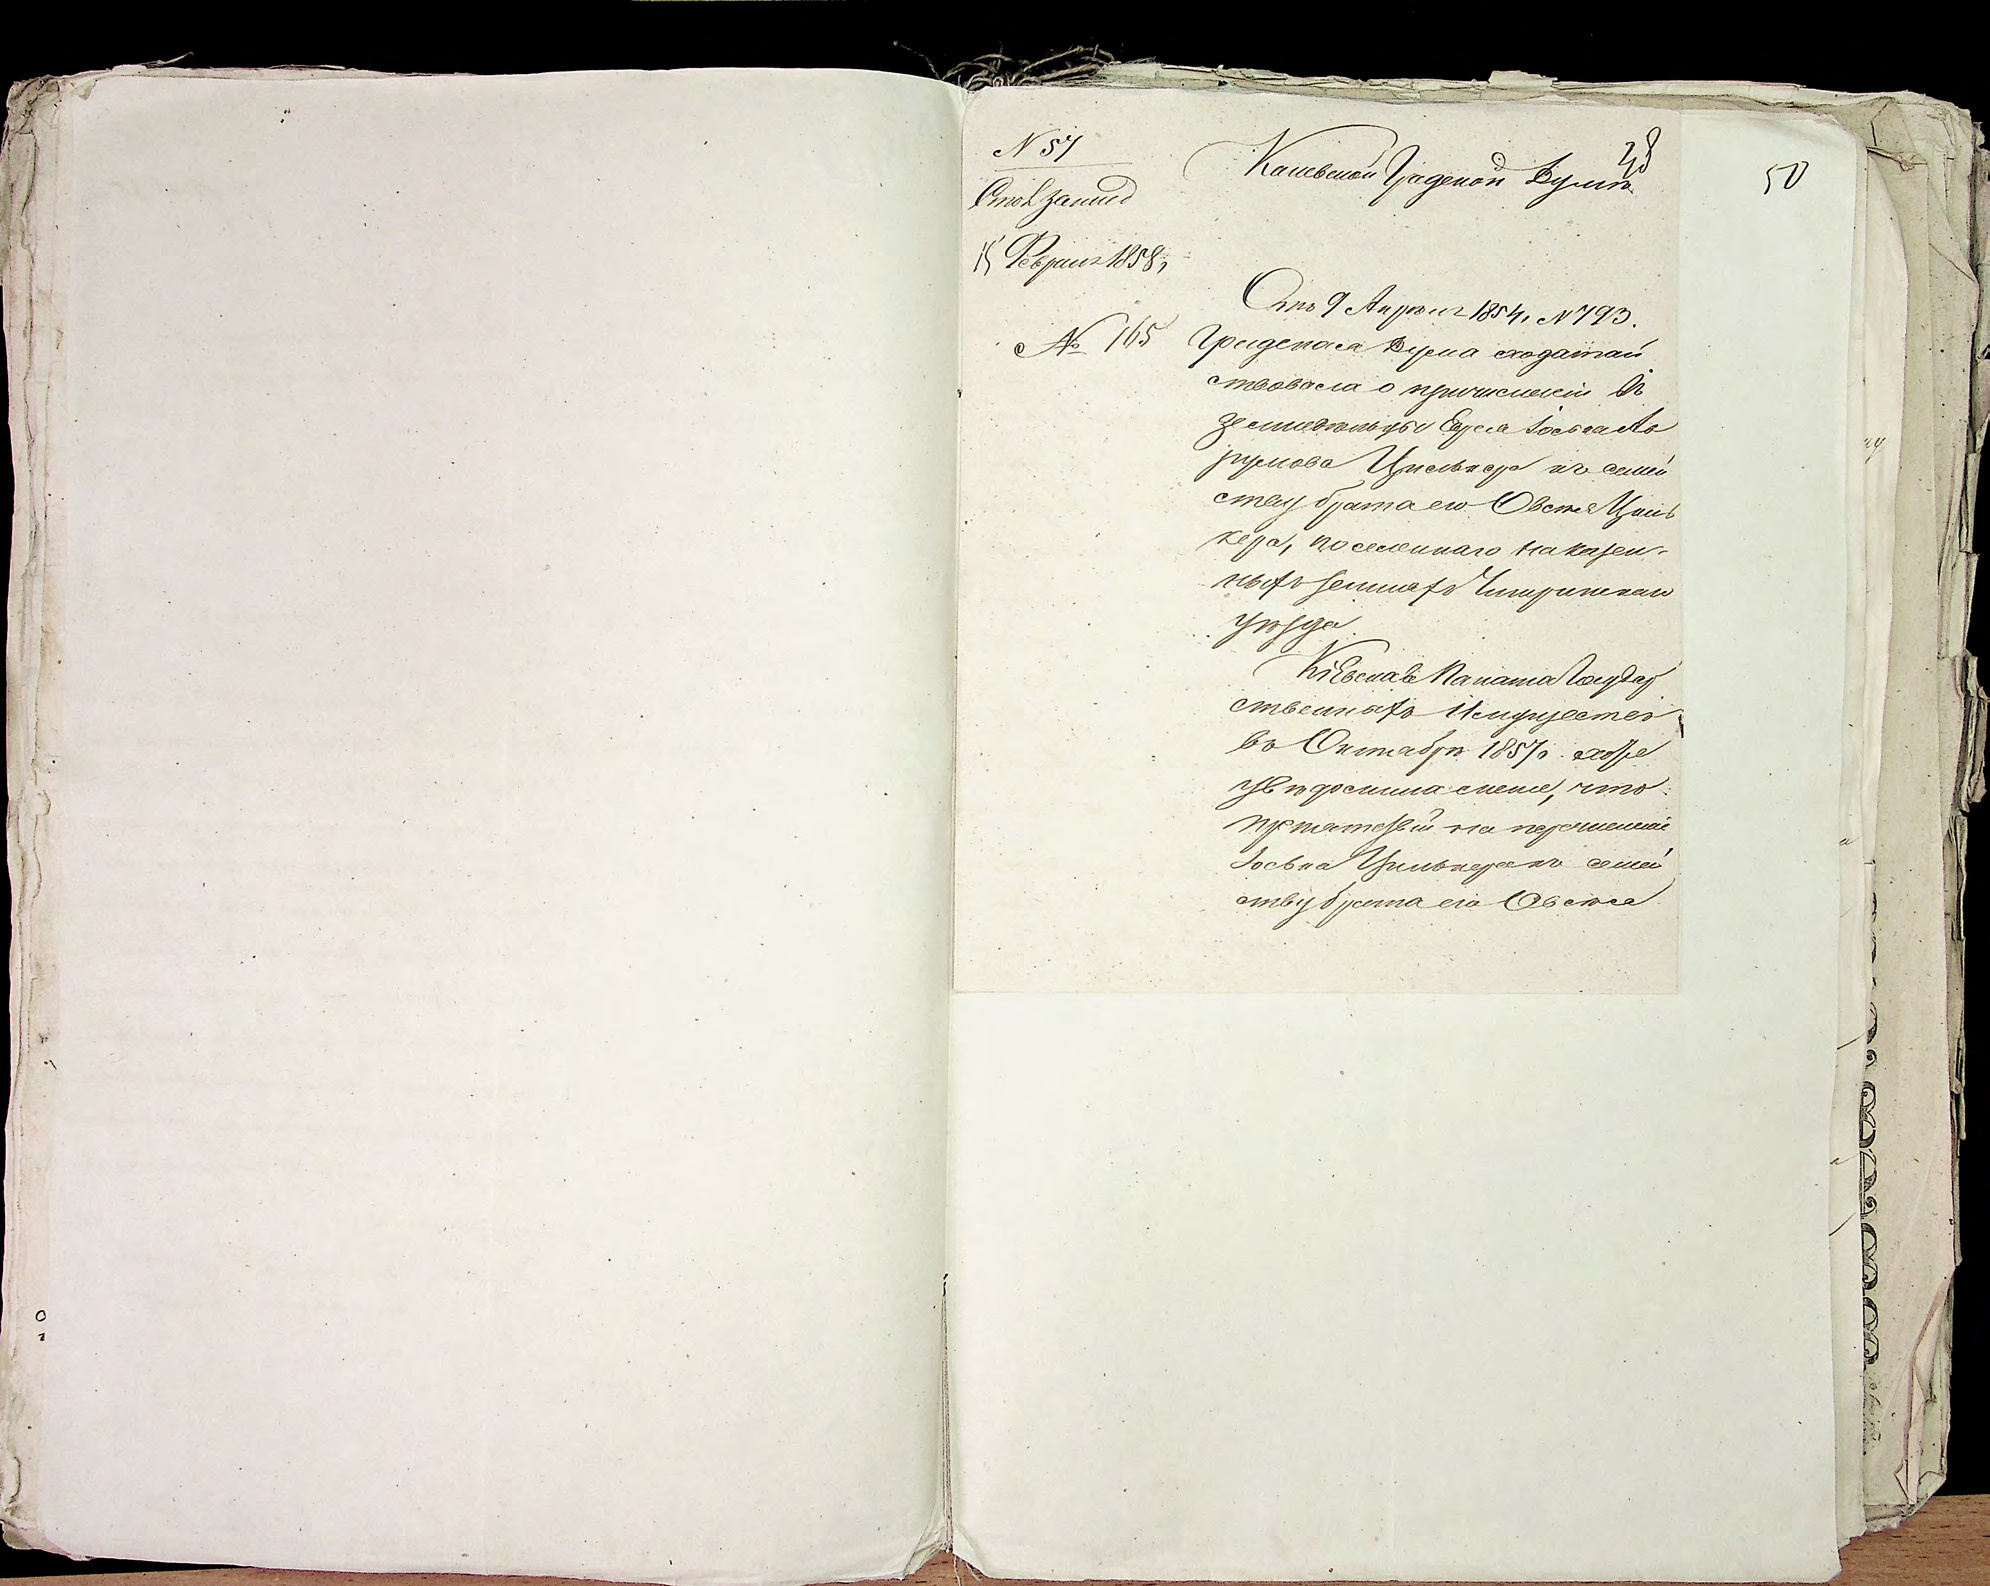 N 57
15 Февраля 1858,
№ 165
Каневской Градской Думѣ
50
Отъ 9 Апрѣля 1854, N 793.
Градская Дума ходатай
ствовала о причисленіи въ
земледѣльцы Еврея Іосья Аб
румова Цилькера къ семей
ству брата его Овсея Циль
кера, поселеннаго на казен-
ныхъ земляхъ Чигиринскаго
уѣзда.
Кіевская Палата Государ
ственныхъ Имуществъ
въ Октябрѣ 1857, года
увѣдомила меня, что
препятствій на перечисленіе
Іосьа Цилькера къ семей
ству брата его Овсея